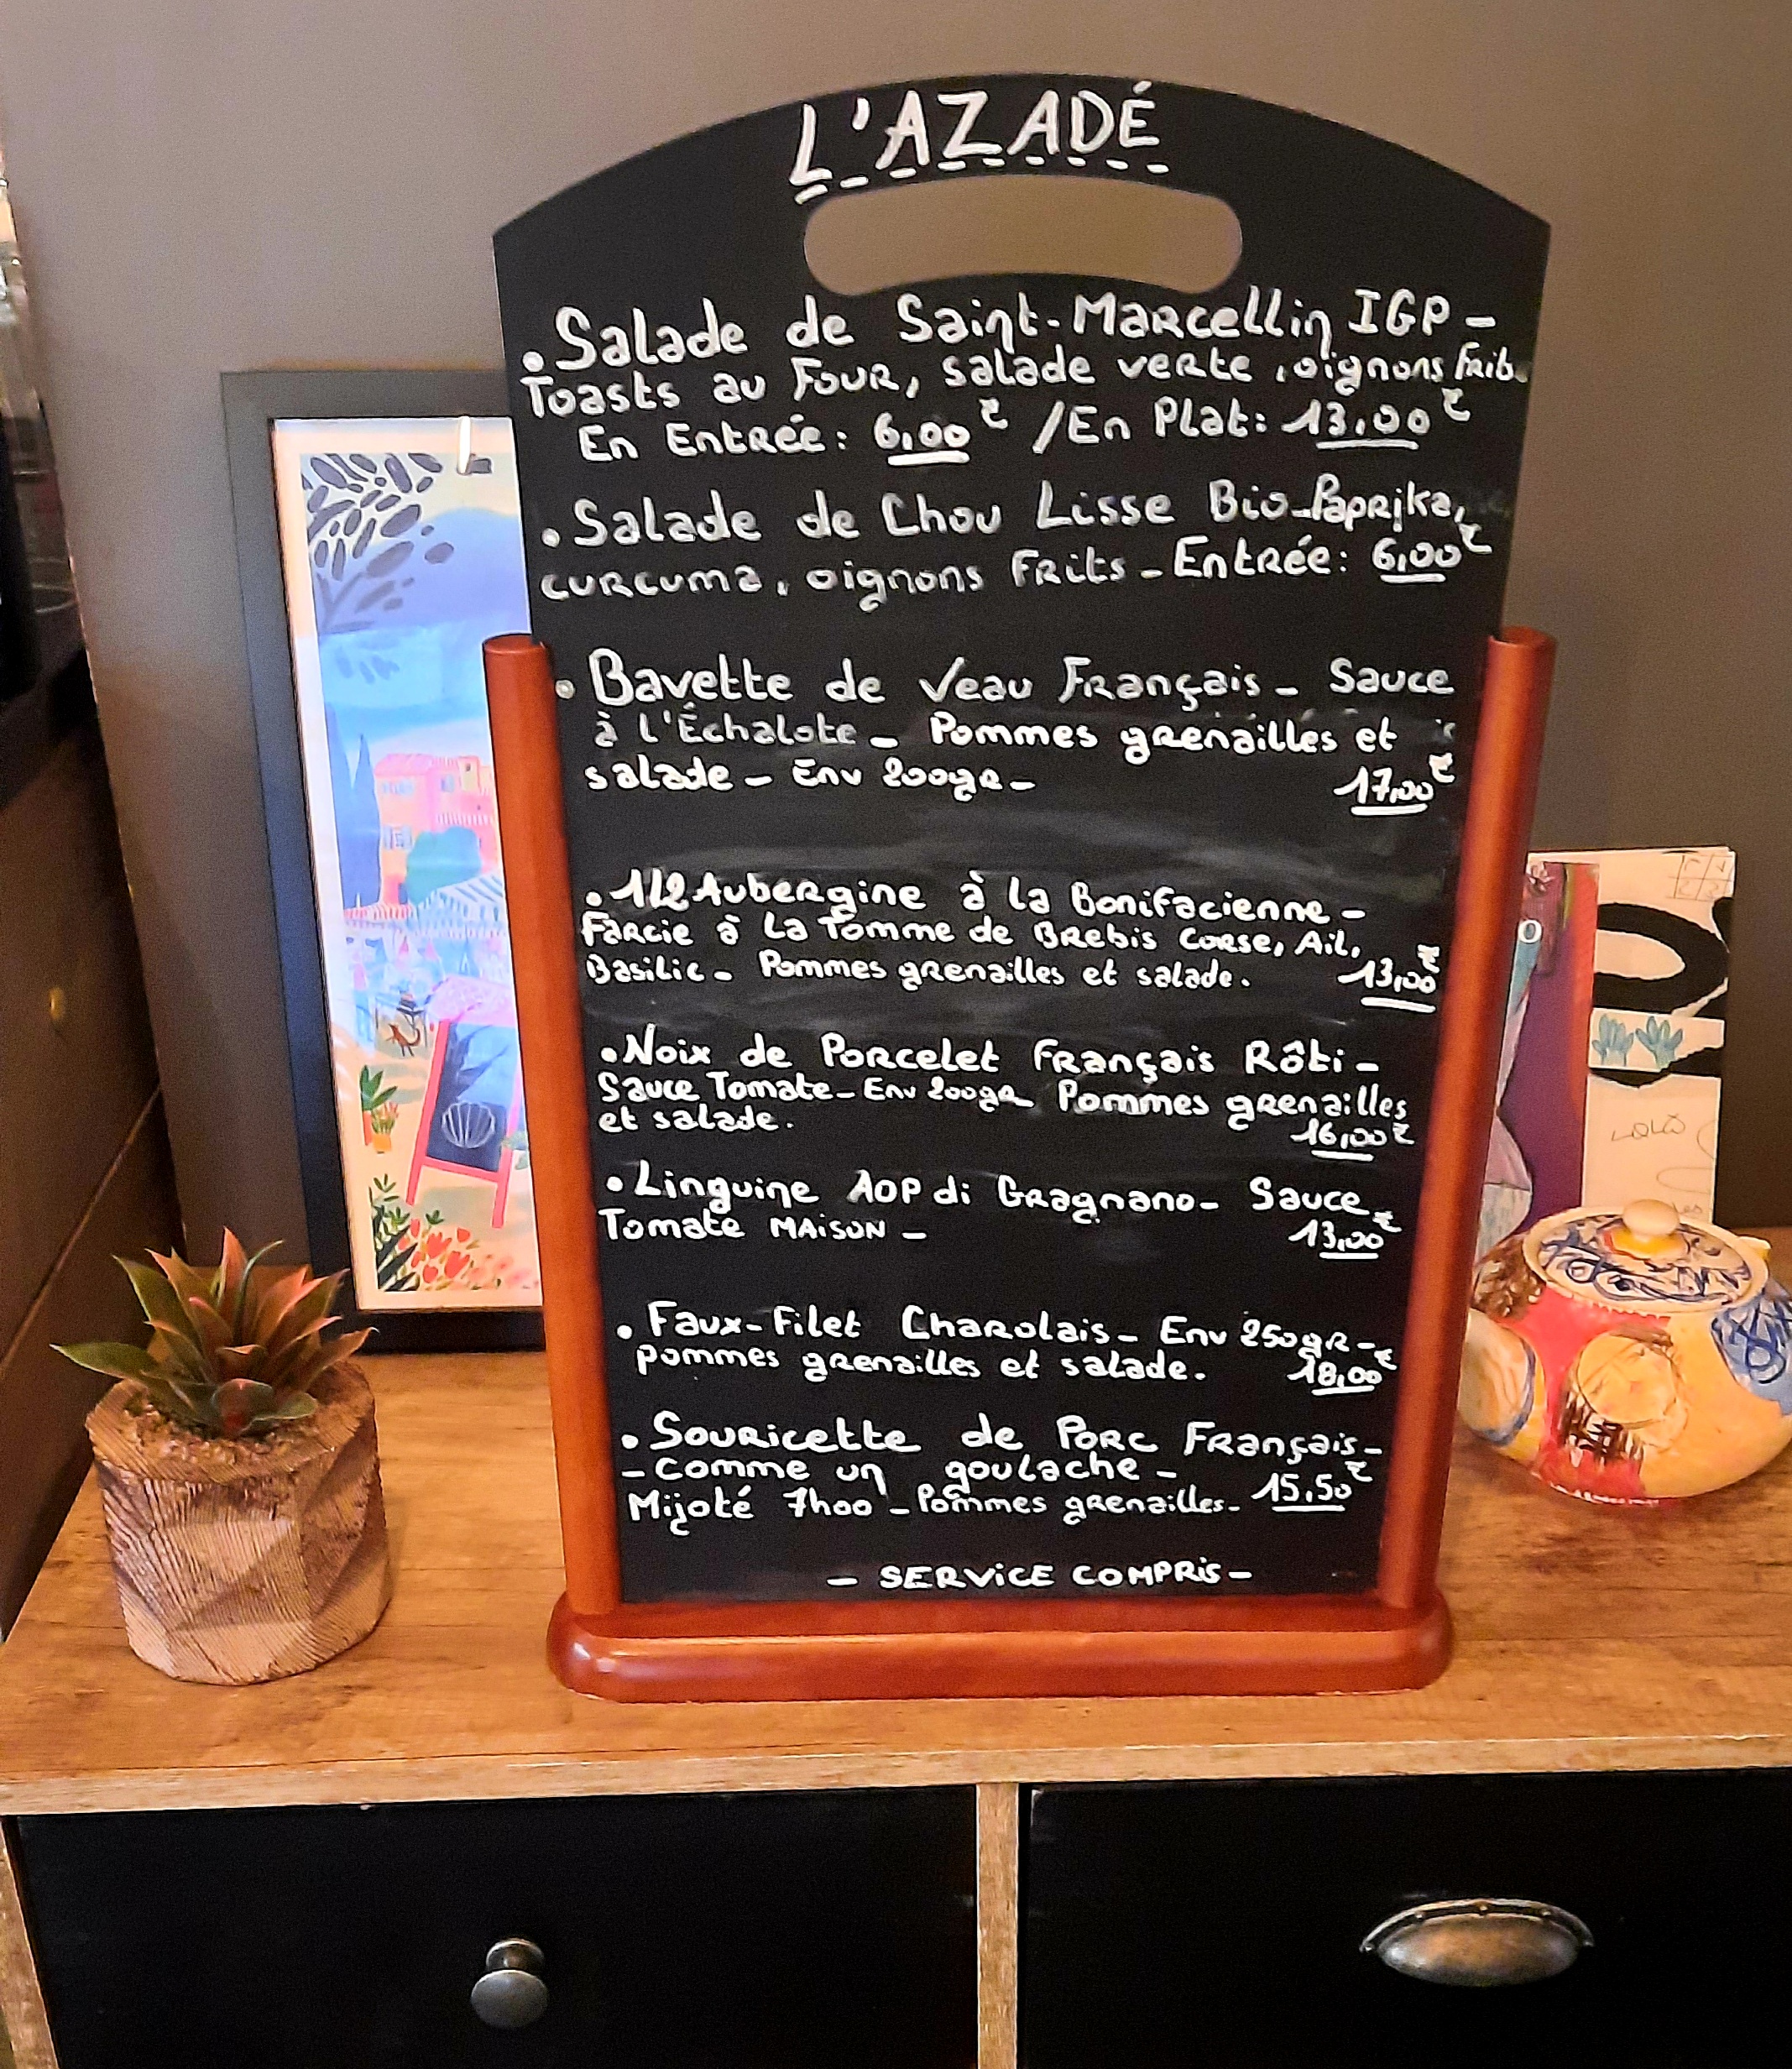 L'AZADÉ
• Salade de Saint-Marcellin IGP -
Toasts au Four, salade verte, oignons frits
En Entrée: 6,00€ / En Plat: 13,00€
• Salade de Chou Lisse Bio - Paprika,
curcuma, oignons frits - Entrée: 6,00€
• Bavette de Veau Français - Sauce
à l'Échalote - Pommes grenailles et
salade - Env 200gr - 17,00€
• 1/2 Aubergine à la Bonifacienne -
Farcie à La Tomme de Brebis Corse, Ail,
Basilic - Pommes grenailles et salade. 13,00€
• Noix de Porcelet Français Rôti -
Sauce Tomate - Env 200gr Pommes grenailles
et salade. 16,00€
• Linguine AOP di Gragnano - Sauce
Tomate MAISON - 13,00€
• Faux-Filet Charolais - Env 250gr -
pommes grenailles et salade. 18,00€
• Souricette de Porc Français -
- comme un goulache -
Mijoté 7h00 - Pommes grenailles - 15,50€
- SERVICE COMPRIS -
LOLO